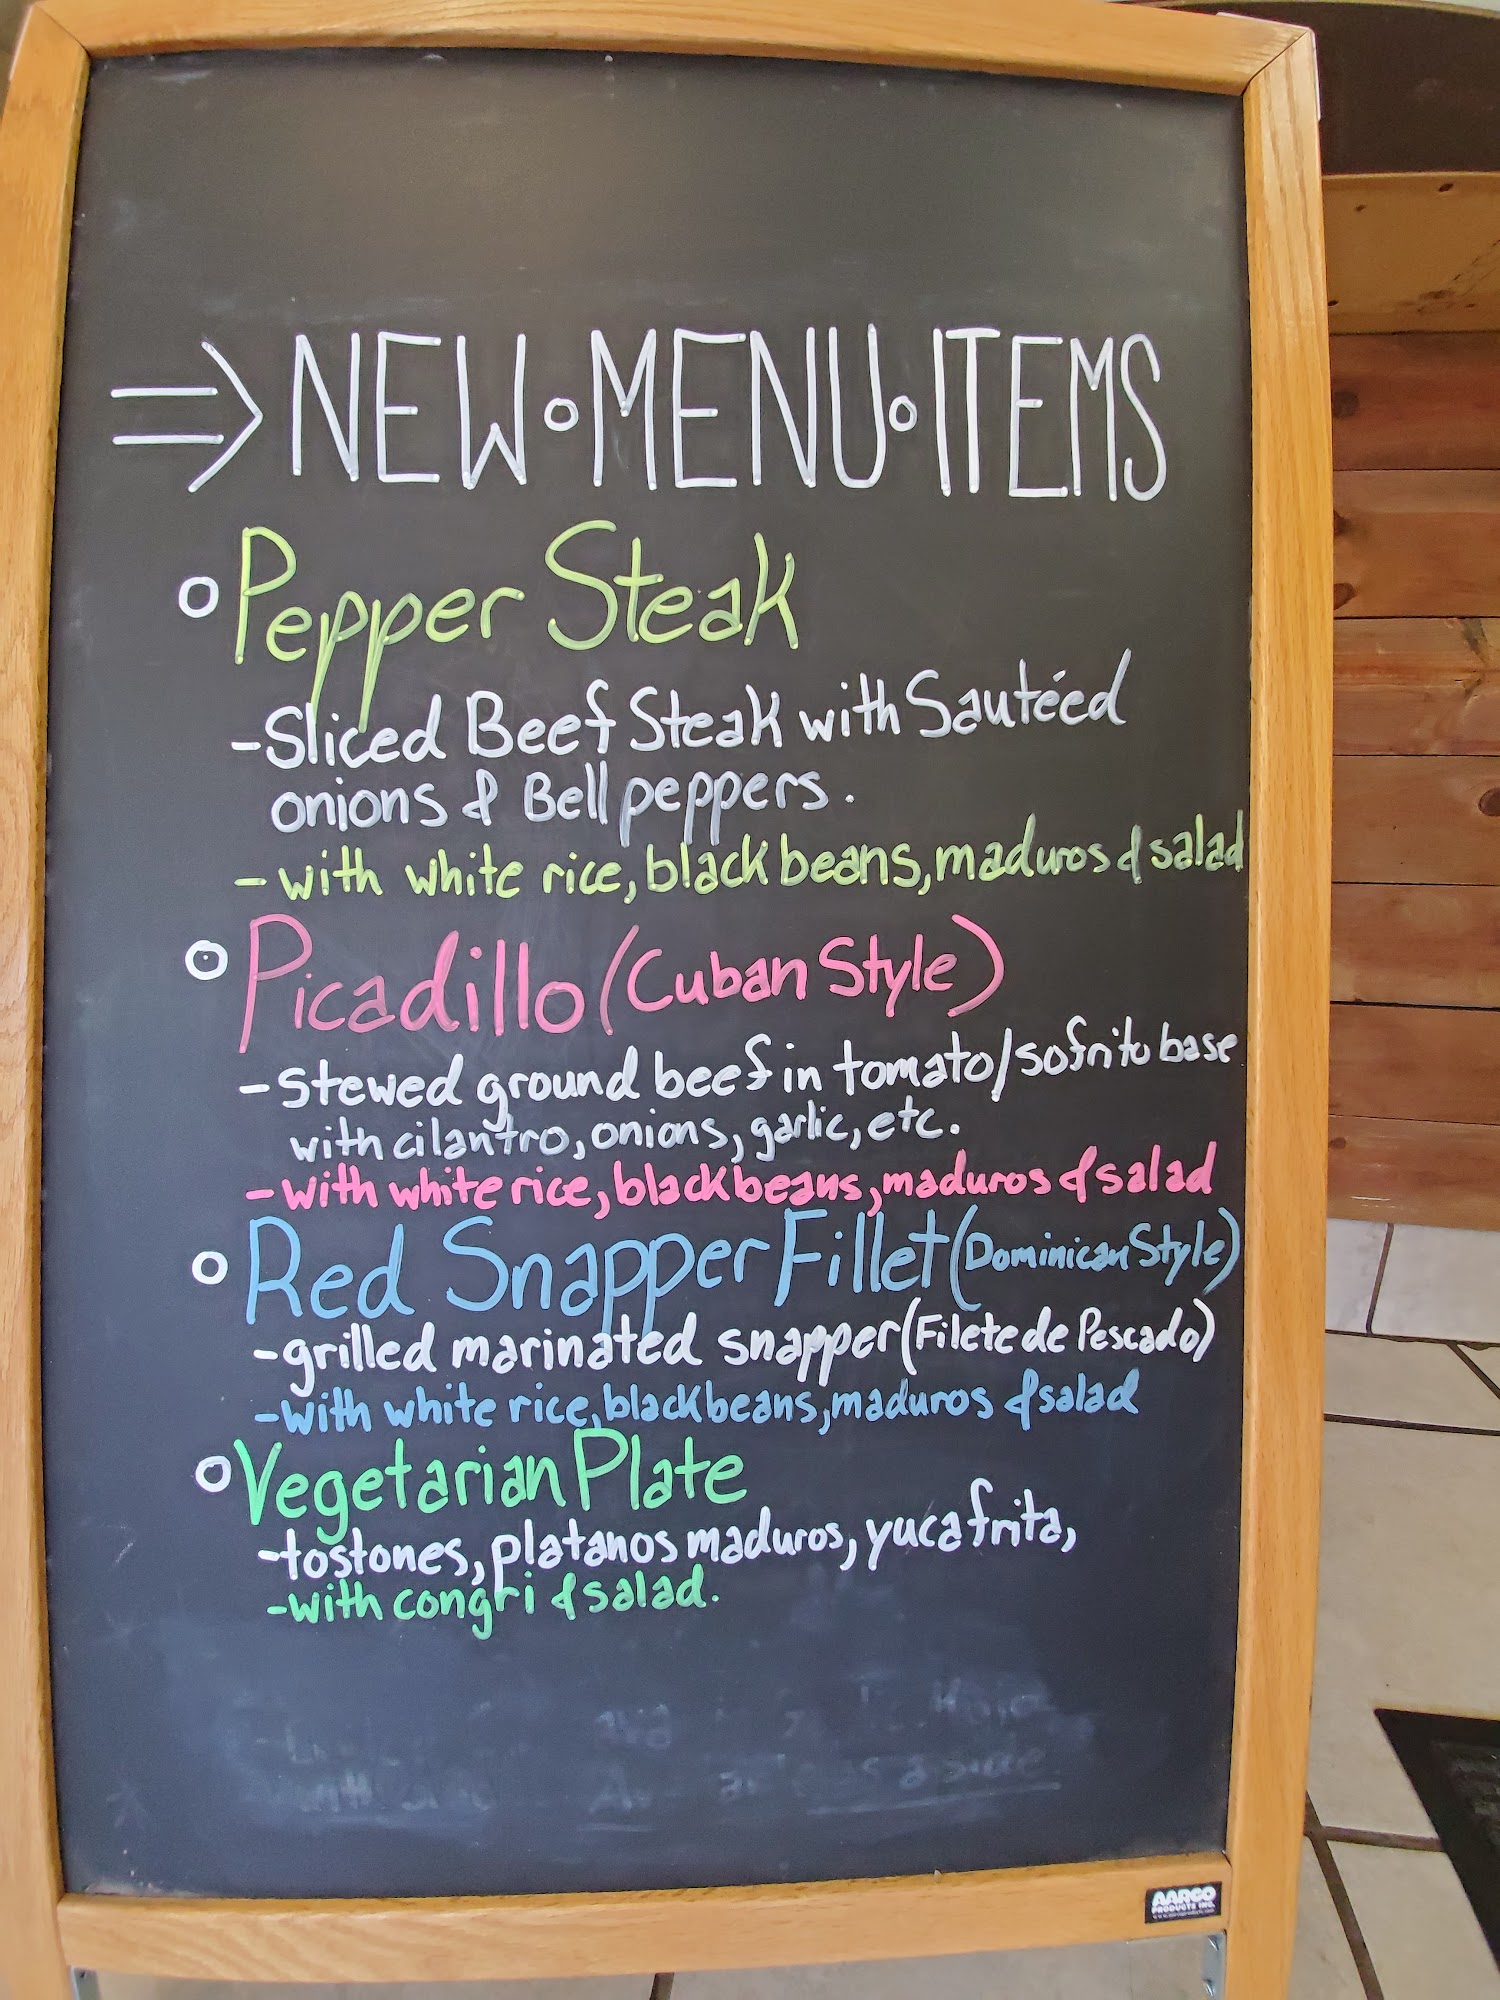 ⇒ NEW • MENU • ITEMS
○ Pepper Steak
- Sliced Beef Steak with Sautéed
onions & Bell peppers.
- with white rice, black beans, maduros & salad
○ Picadillo (Cuban Style)
- stewed ground beef in tomato/sofrito base
with cilantro, onions, garlic, etc.
- with white rice, black beans, maduros & salad
○ Red Snapper Fillet (Dominican Style)
- grilled marinated snapper (Filete de Pescado)
- with white rice, black beans, maduros & salad
○ Vegetarian Plate
- tostones, platanos maduros, yuca frita,
- with congri & salad.
as a side
AARCO
PRODUCTS INC.